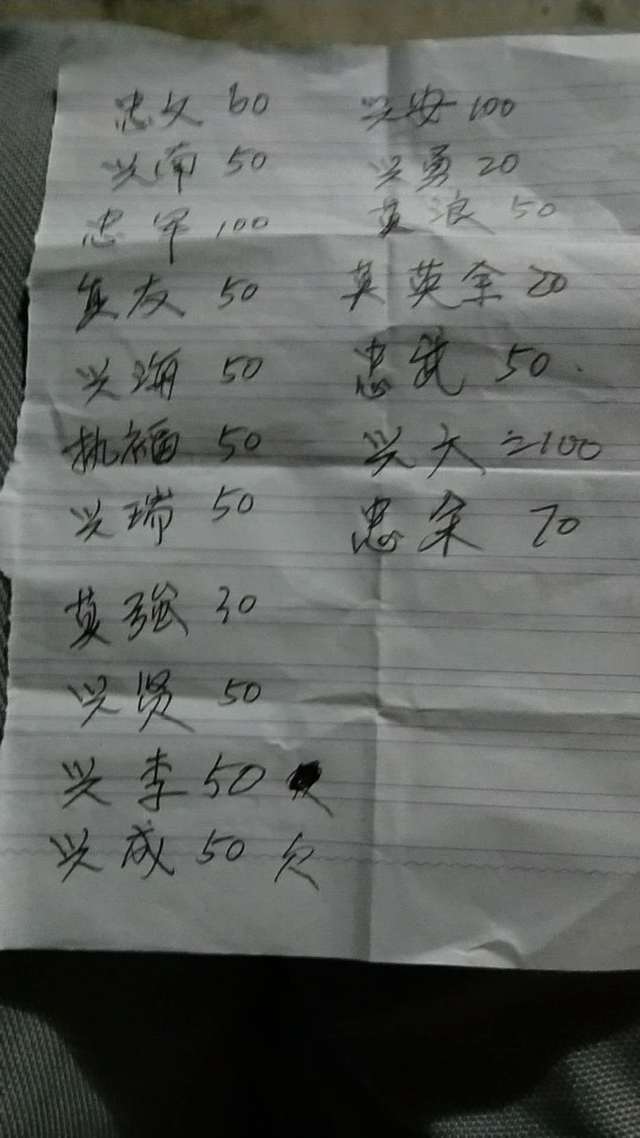 忠文 60
兴南 50
忠军 100
友 50
兴海 50
执福 50
兴瑞 50
莫强 30
兴贤 50
兴李 50
兴成 50 欠
兴安 100
兴勇 20
莫浪 50
英余 20
忠 50
兴大 100
忠余 70